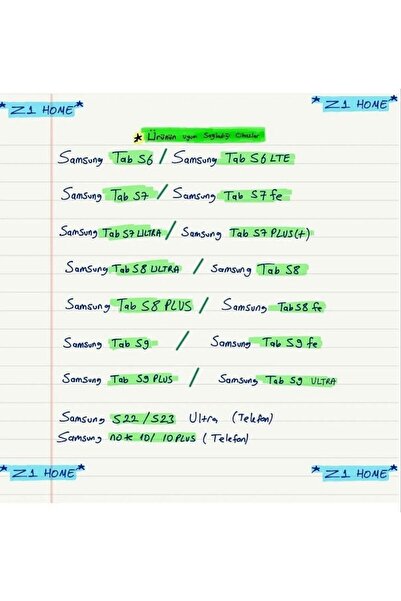 *Z1 HOME* *Z1 HOME*
* Ürünün uyum Sağladığı Cihazlar
Samsung Tab S6 / Samsung Tab S6 LTE
Samsung Tab S7 / Samsung Tab S7 fe
Samsung Tab S7 ULTRA / Samsung Tab S7 PLUS(+)
Samsung Tab S8 ULTRA / Samsung Tab S8
Samsung Tab S8 PLUS / Samsung Tab S8 fe
Samsung Tab S9 / Samsung Tab S9 fe
Samsung Tab S9 PLUS / Samsung Tab S9 ULTRA
Samsung S22/S23 Ultra (Telefon)
Samsung not 10/ 10 PLUS (Telefon)
*Z1 HOME* *Z1 HOME*